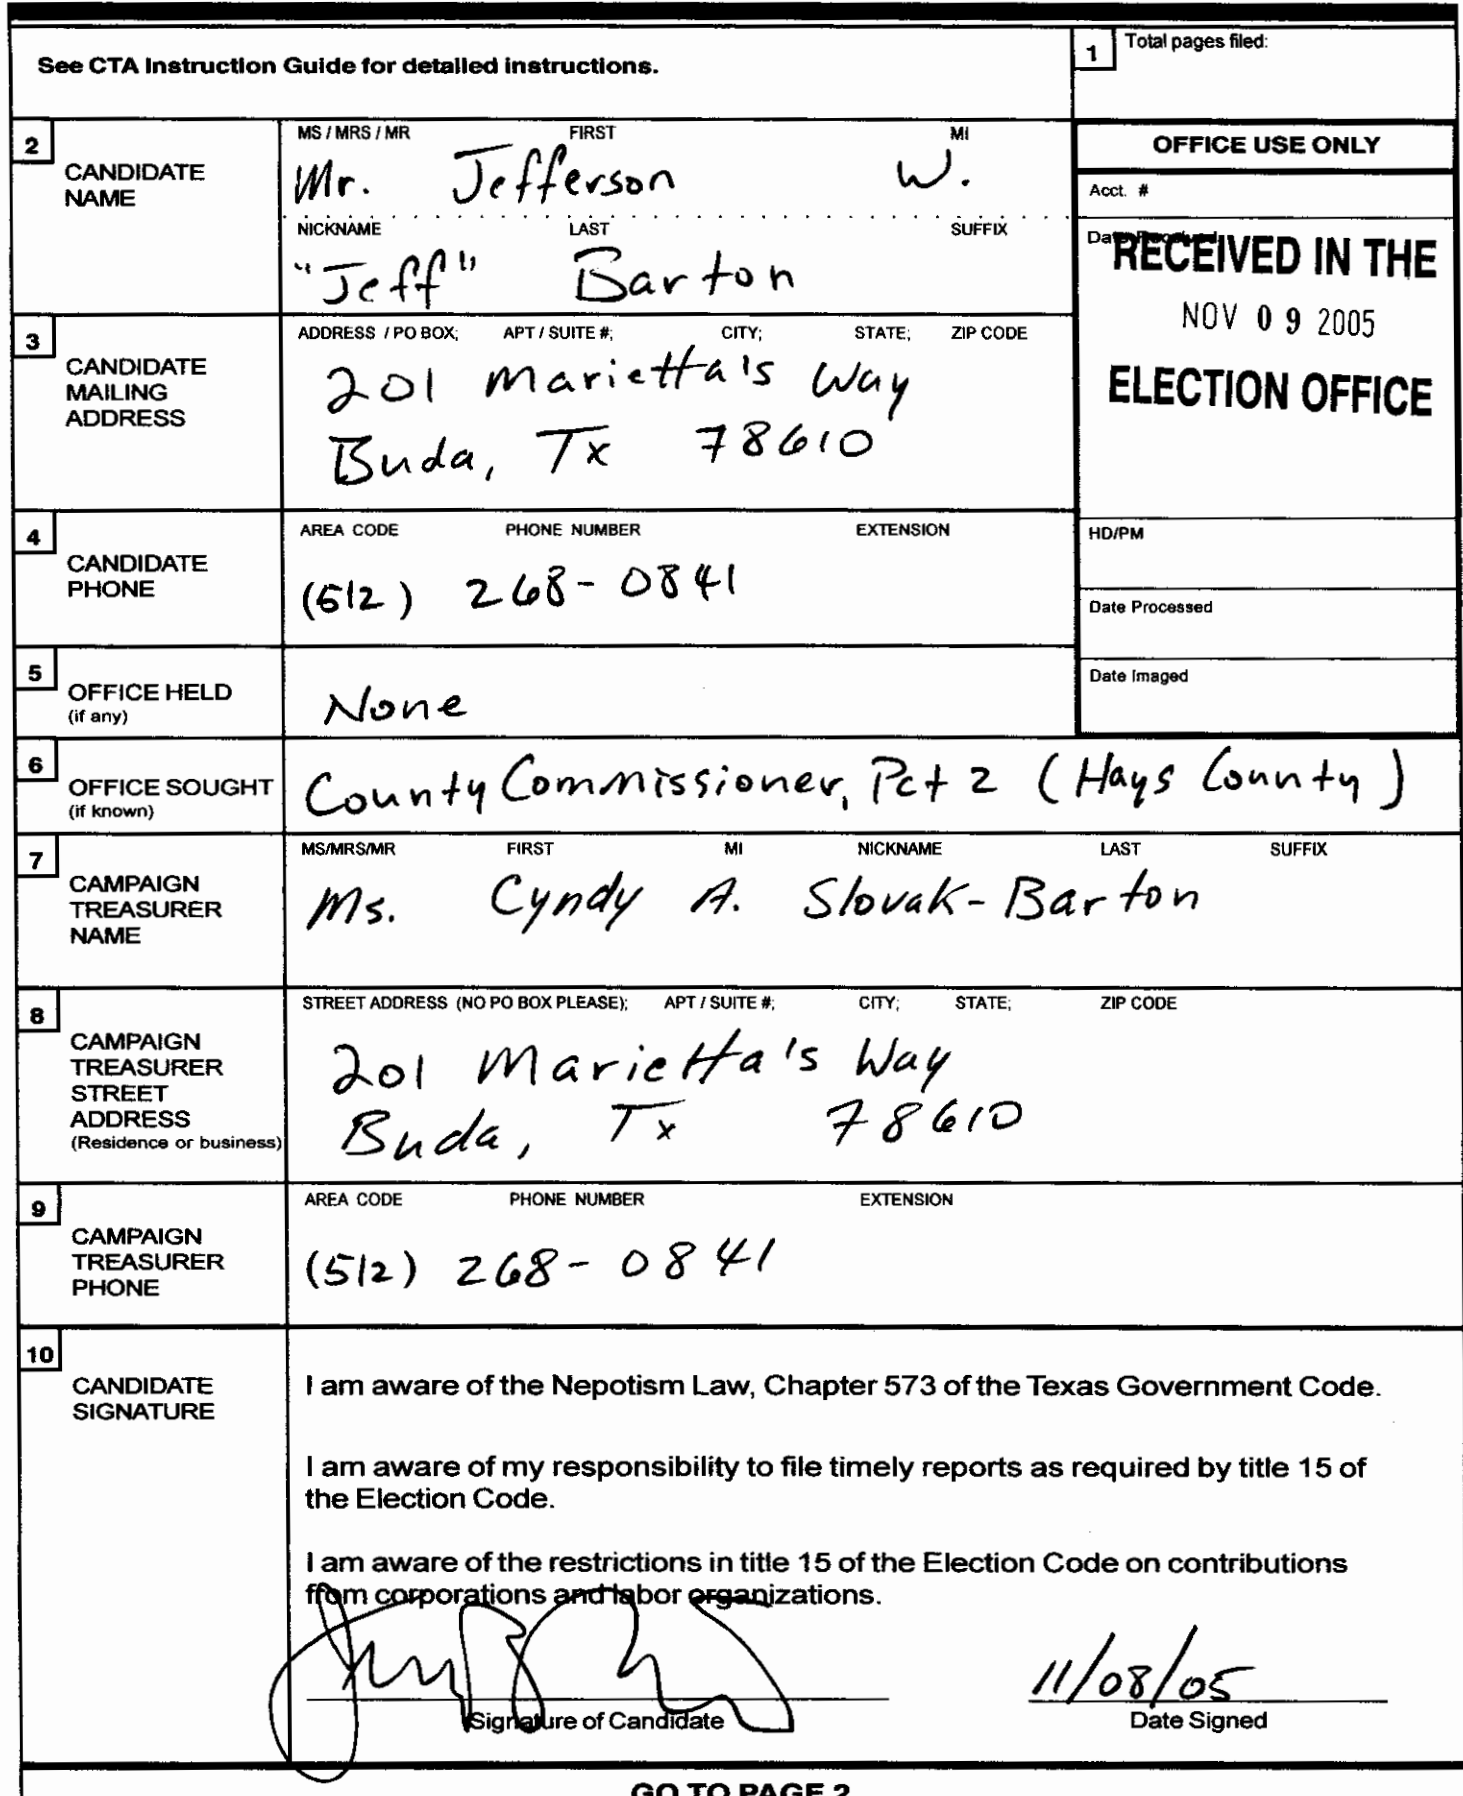 See CTA Instruction Guide for detailed instructions.
1 Total pages filed:
2 CANDIDATE NAME
MS / MRS / MR FIRST MI
Mr. Jefferson W.
NICKNAME LAST SUFFIX
"Jeff" Barton
OFFICE USE ONLY
Acct. #
Date Received
RECEIVED IN THE
NOV 09 2005
ELECTION OFFICE
HD/PM
Date Processed
Date Imaged
3 CANDIDATE MAILING ADDRESS
ADDRESS / PO BOX; APT / SUITE #; CITY; STATE; ZIP CODE
201 Marietta's Way
Buda, Tx 78610
4 CANDIDATE PHONE
AREA CODE PHONE NUMBER EXTENSION
(512) 268-0841
5 OFFICE HELD (if any)
None
6 OFFICE SOUGHT (if known)
County Commissioner, Pct 2 (Hays County)
7 CAMPAIGN TREASURER NAME
MS/MRS/MR FIRST MI NICKNAME LAST SUFFIX
Ms. Cyndy A. Slovak-Barton
8 CAMPAIGN TREASURER STREET ADDRESS (Residence or business)
STREET ADDRESS (NO PO BOX PLEASE); APT / SUITE #; CITY; STATE; ZIP CODE
201 Marietta's Way
Buda, Tx 78610
9 CAMPAIGN TREASURER PHONE
AREA CODE PHONE NUMBER EXTENSION
(512) 268-0841
10 CANDIDATE SIGNATURE
I am aware of the Nepotism Law, Chapter 573 of the Texas Government Code.
I am aware of my responsibility to file timely reports as required by title 15 of
the Election Code.
I am aware of the restrictions in title 15 of the Election Code on contributions
from corporations and labor organizations.
11/08/05
Signature of Candidate Date Signed
GO TO PAGE 2